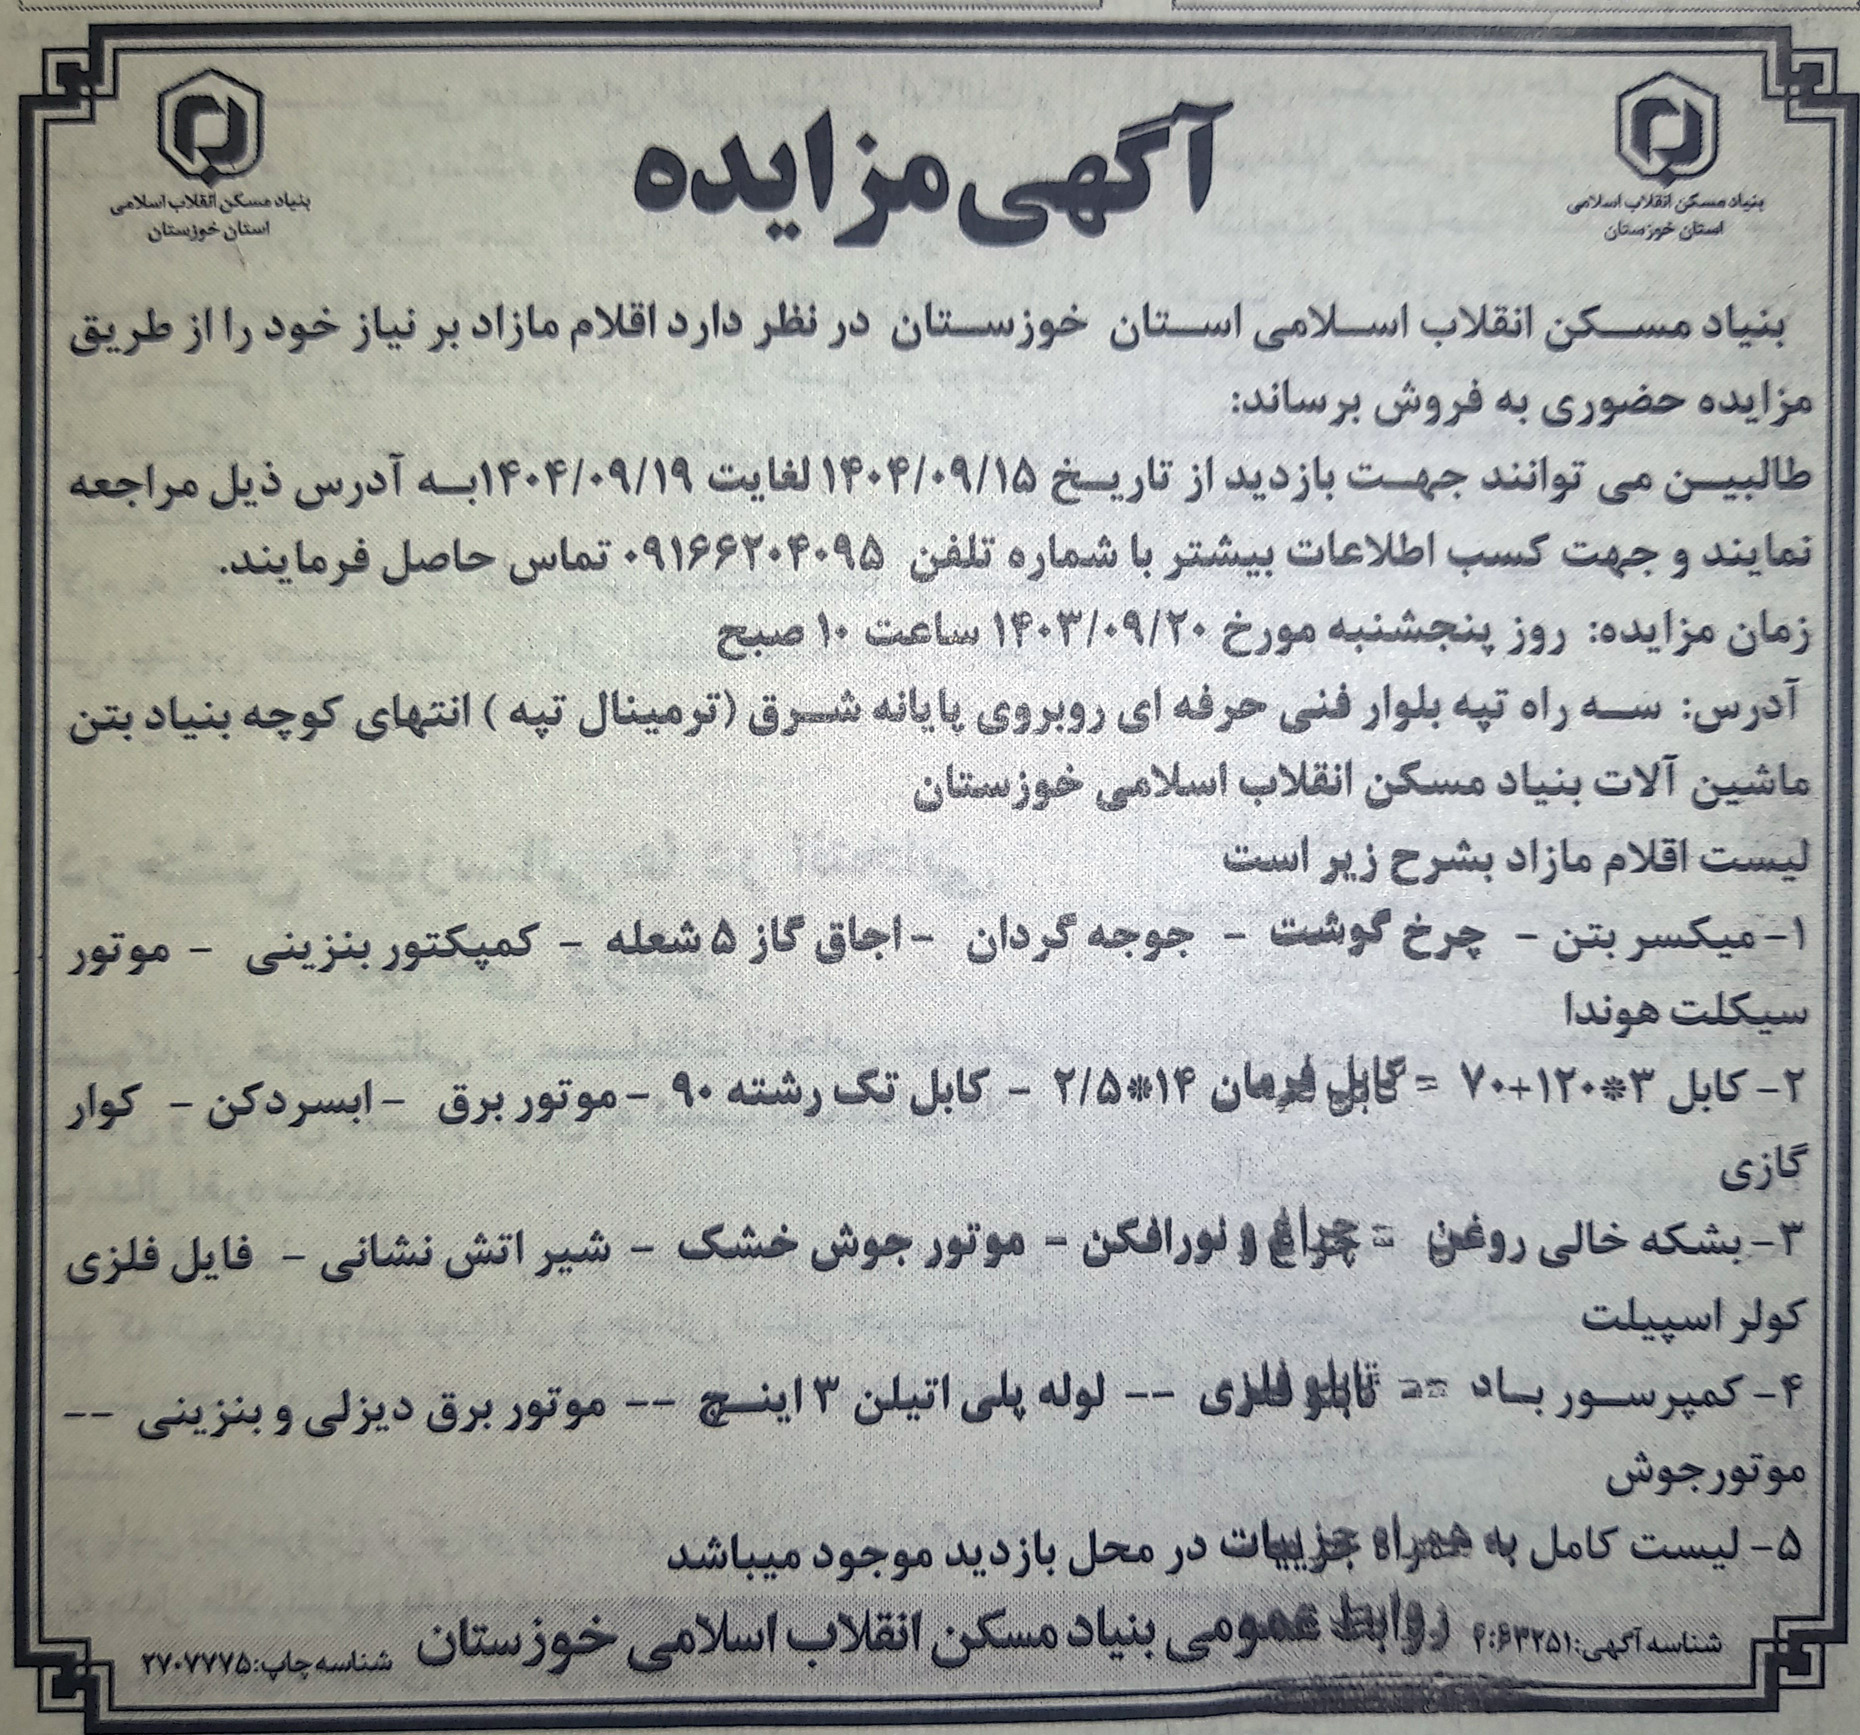 بنیاد مسکن انقلاب اسلامی
استان خوزستان
آگهی مزایده
بنیاد مسکن انقلاب اسلامی
استان خوزستان
بنیاد مسکن انقلاب اسلامی استان خوزستان در نظر دارد اقلام مازاد بر نیاز خود را از طریق
مزایده حضوری به فروش برساند:
طالبین می توانند جهت بازدید از تاریخ ۱۴۰۴/۰۹/۱۵ لغایت ۱۴۰۴/۰۹/۱۹به آدرس ذیل مراجعه
نمایند و جهت کسب اطلاعات بیشتر با شماره تلفن ۰۹۱۶۶۲۰۴۰۹۵ تماس حاصل فرمایند.
زمان مزایده: روز پنجشنبه مورخ ۱۴۰۳/۰۹/۲۰ ساعت ۱۰ صبح
آدرس: سه راه تپه بلوار فنی حرفه ای روبروی پایانه شرق (ترمینال تپه ) انتهای کوچه بنیاد بتن
ماشین آلات بنیاد مسکن انقلاب اسلامی خوزستان
لیست اقلام مازاد بشرح زیر است
۱- میکسر بتن - چرخ گوشت - جوجه گردان - اجاق گاز ۵ شعله - کمپکتور بنزینی - موتور
سیکلت هوندا
۲- کابل ۳*۱۲۰+۷۰ - کابل فرمان ۱۴*۲/۵ - کابل تک رشته ۹۰ - موتور برق - ابسردکن - کوار
گازی
۳- بشکه خالی روغن - چراغ و نورافکن - موتور جوش خشک - شیر اتش نشانی - فایل فلزی
کولر اسپیلت
۴- کمپرسور باد -- تابلو فلزی -- لوله پلی اتیلن ۳ اینچ -- موتور برق دیزلی و بنزینی --
موتورجوش
۵- لیست کامل به همراه جزییات در محل بازدید موجود میباشد
شناسه آگهی: روابط عمومی بنیاد مسکن انقلاب اسلامی خوزستان شناسه چاپ:۲۷۰۷۷۷۵